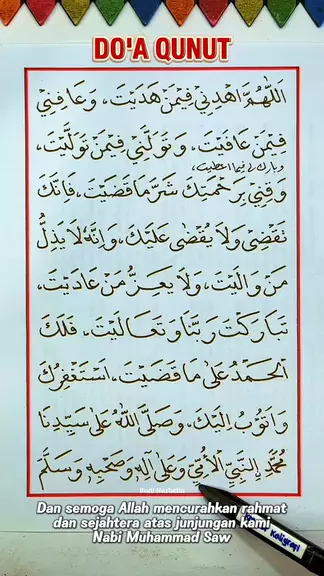 DO'A QUNUT
اَللّٰهُمَّ اهْدِنِيْ فِيْمَنْ هَدَيْتَ، وَعَافِنِيْ
فِيْمَنْ عَافَيْتَ، وَتَوَلَّنِيْ فِيْمَنْ تَوَلَّيْتَ،
وبارك لي فيما اعطيت
وَقِنِيْ بِرَحْمَتِكَ شَرَّ مَا قَضَيْتَ، فَاِنَّكَ
تَقْضِيْ وَلَا يُقْضٰى عَلَيْكَ، وَاِنَّهُ لَا يَذِلُّ
مَنْ وَالَيْتَ، وَلَا يَعِزُّ مَنْ عَادَيْتَ،
تَبَارَكْتَ رَبَّنَا وَتَعَالَيْتَ، فَلَكَ
الْحَمْدُ عَلٰى مَا قَضَيْتَ، اَسْتَغْفِرُكَ
وَاَتُوْبُ اِلَيْكَ، وَصَلَّى اللّٰهُ عَلٰى سَيِّدِنَا
مُحَمَّدٍ النَّبِيِّ الْاُمِّيِّ وَعَلٰى اٰلِهٖ وَصَحْبِهٖ وَسَلَّمَ
Dan semoga Allah mencurahkan rahmat
dan sejahtera atas junjungan kami
Nabi Muhammad Saw
Kaligrafi